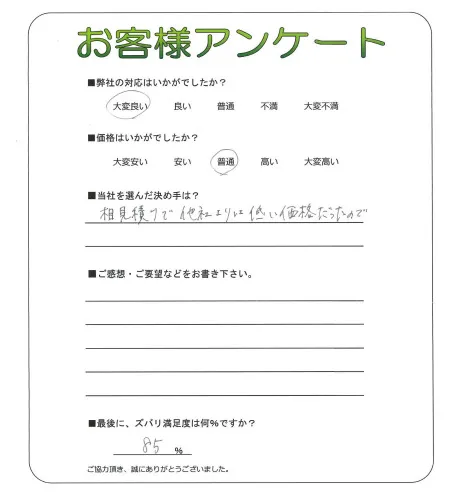 お客様アンケート
■弊社の対応はいかがでしたか？
大変良い 良い 普通 不満 大変不満
■価格はいかがでしたか？
大変安い 安い 普通 高い 大変高い
■当社を選んだ決め手は？
相見積りで他社よりは低い価格だったので
■ご感想・ご要望などをお書き下さい。
■最後に、ズバリ満足度は何％ですか？
85 ％
ご協力頂き、誠にありがとうございました。